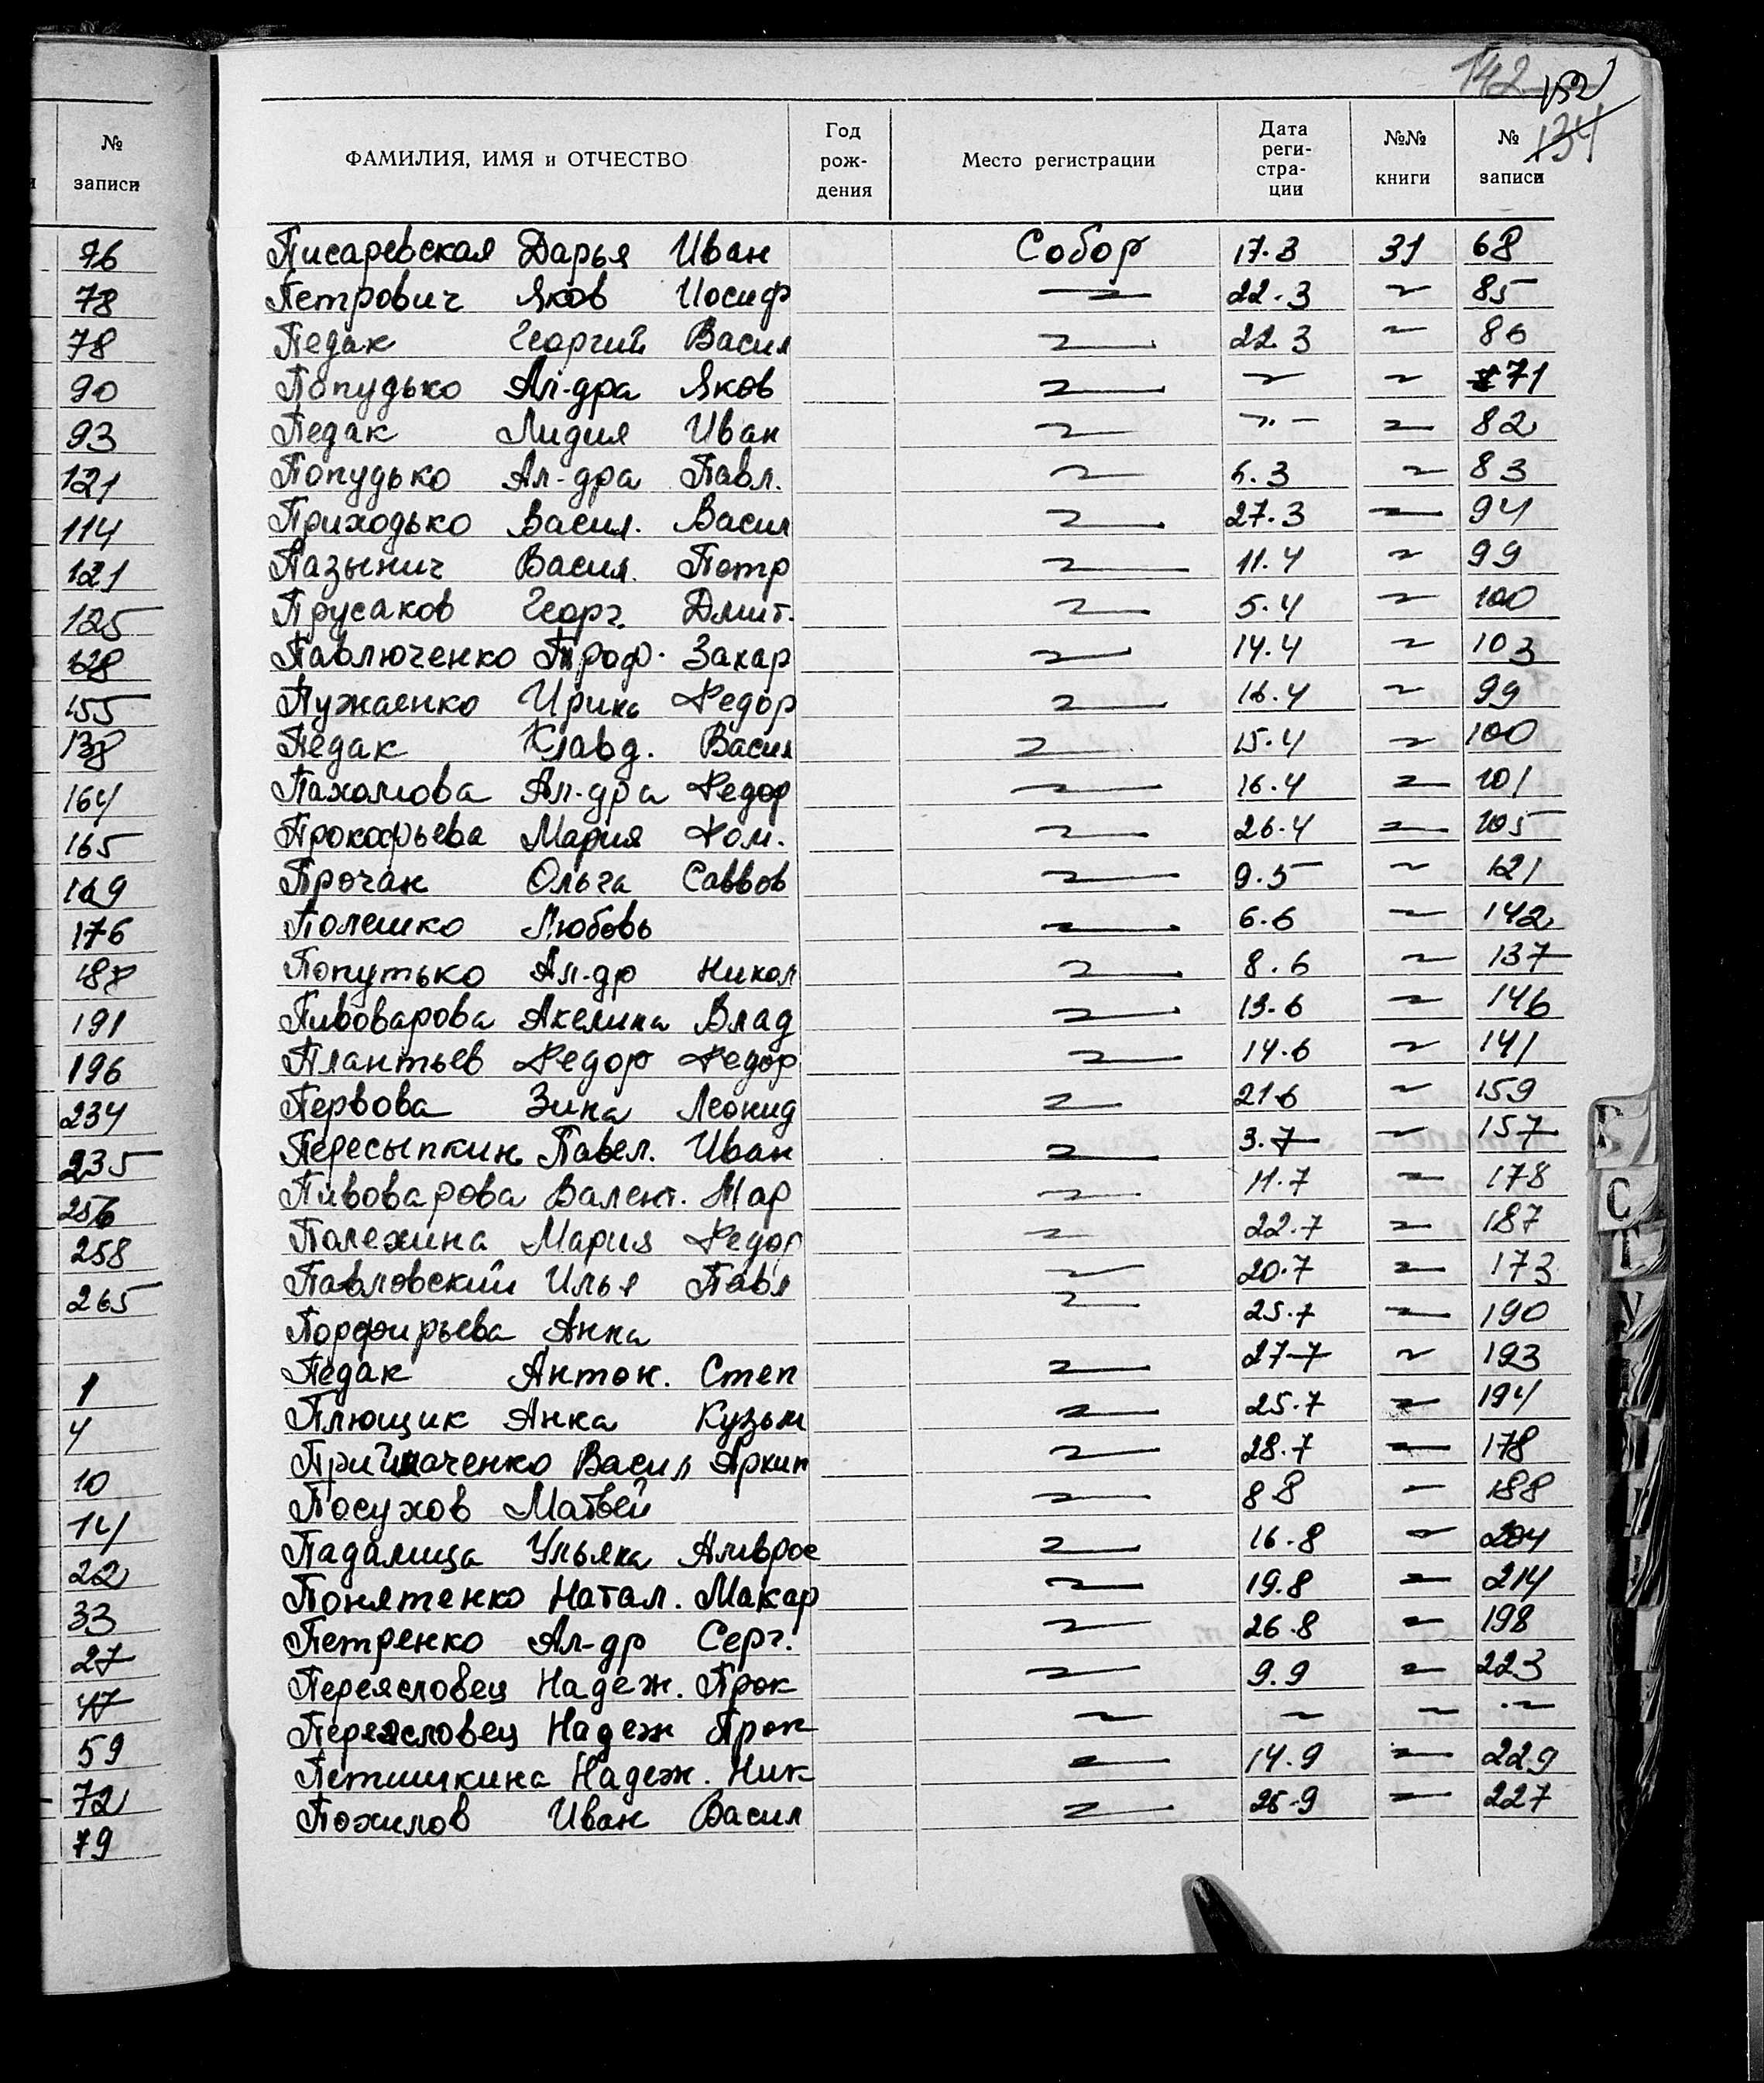 142 152
134
№ записи
ФАМИЛИЯ, ИМЯ и ОТЧЕСТВО Год рож- дения Место регистрации Дата реги- стра- ции №№ книги № записи
76 Писаревская Дарья Иван Собор 17.3 31 68
78 Петрович Яков Иосиф 〃 22.3 〃 85
78 Педак Георгий Васил 〃 22.3 〃 86
90 Попудько Ал-дра Яков 〃 〃 〃 71
93 Педак Лидия Иван 〃 〃 〃 82
121 Попудько Ал-дра Павл. 〃 5.3 〃 83
114 Приходько Васил. Васил 〃 27.3 〃 94
121 Пазынич Васил. Петр 〃 11.4 〃 99
125 Прусаков Георг. Дмит. 〃 5.4 〃 100
128 Павлюченко Троф. Захар 〃 14.4 〃 103
155 Пужаенко Ирина Федор 〃 16.4 〃 99
138 Педак Клавд. Васил 〃 15.4 〃 100
164 Пахомова Ал-дра Федор 〃 16.4 〃 101
165 Прокофьева Мария Фом. 〃 26.4 〃 105
169 Прочан Ольга Саввов 〃 9.5 〃 121
176 Полешко Любовь 〃 6.6 〃 142
Попутько Ал-др Никол 〃 8.6 〃 137
191 Пивоварова Акелина Влад 〃 13.6 〃 146
196 Плантьев Федор Федор 〃 14.6 〃 141
234 Первова Зина Леонид 〃 21.6 〃 159
235 Пересыпкин Павел. Иван 〃 3.7 〃 157
256 Пивоварова Валент. Мар 〃 11.7 〃 178
258 Полехина Мария Федор 〃 22.7 〃 187
265 Павловский Илья Павл 〃 20.7 〃 173
Порфирьева Анна 〃 25.7 〃 190
1 Педак Антон. Степ 〃 27.7 〃 193
4 Плющик Анна Кузьм 〃 25.7 〃 194
10 Приймаченко Васил Архип 〃 28.7 〃 178
14 Посухов Матвей 〃 8 8 〃 188
22 Падалица Ульяна Амврос 〃 16.8 〃 204
33 Понятенко Натал. Макар 〃 19.8 〃 214
27 Петренко Ал-др Серг. 〃 26.8 〃 198
47 Переясловец Надеж. Прок 〃 9.9 〃 223
59 Переясловец Надеж Прок 〃 〃 〃 〃
72 Петишкина Надеж. Ник 〃 14.9 〃 229
79 Похилов Иван Васил 〃 25.9 〃 227
С
Т
У